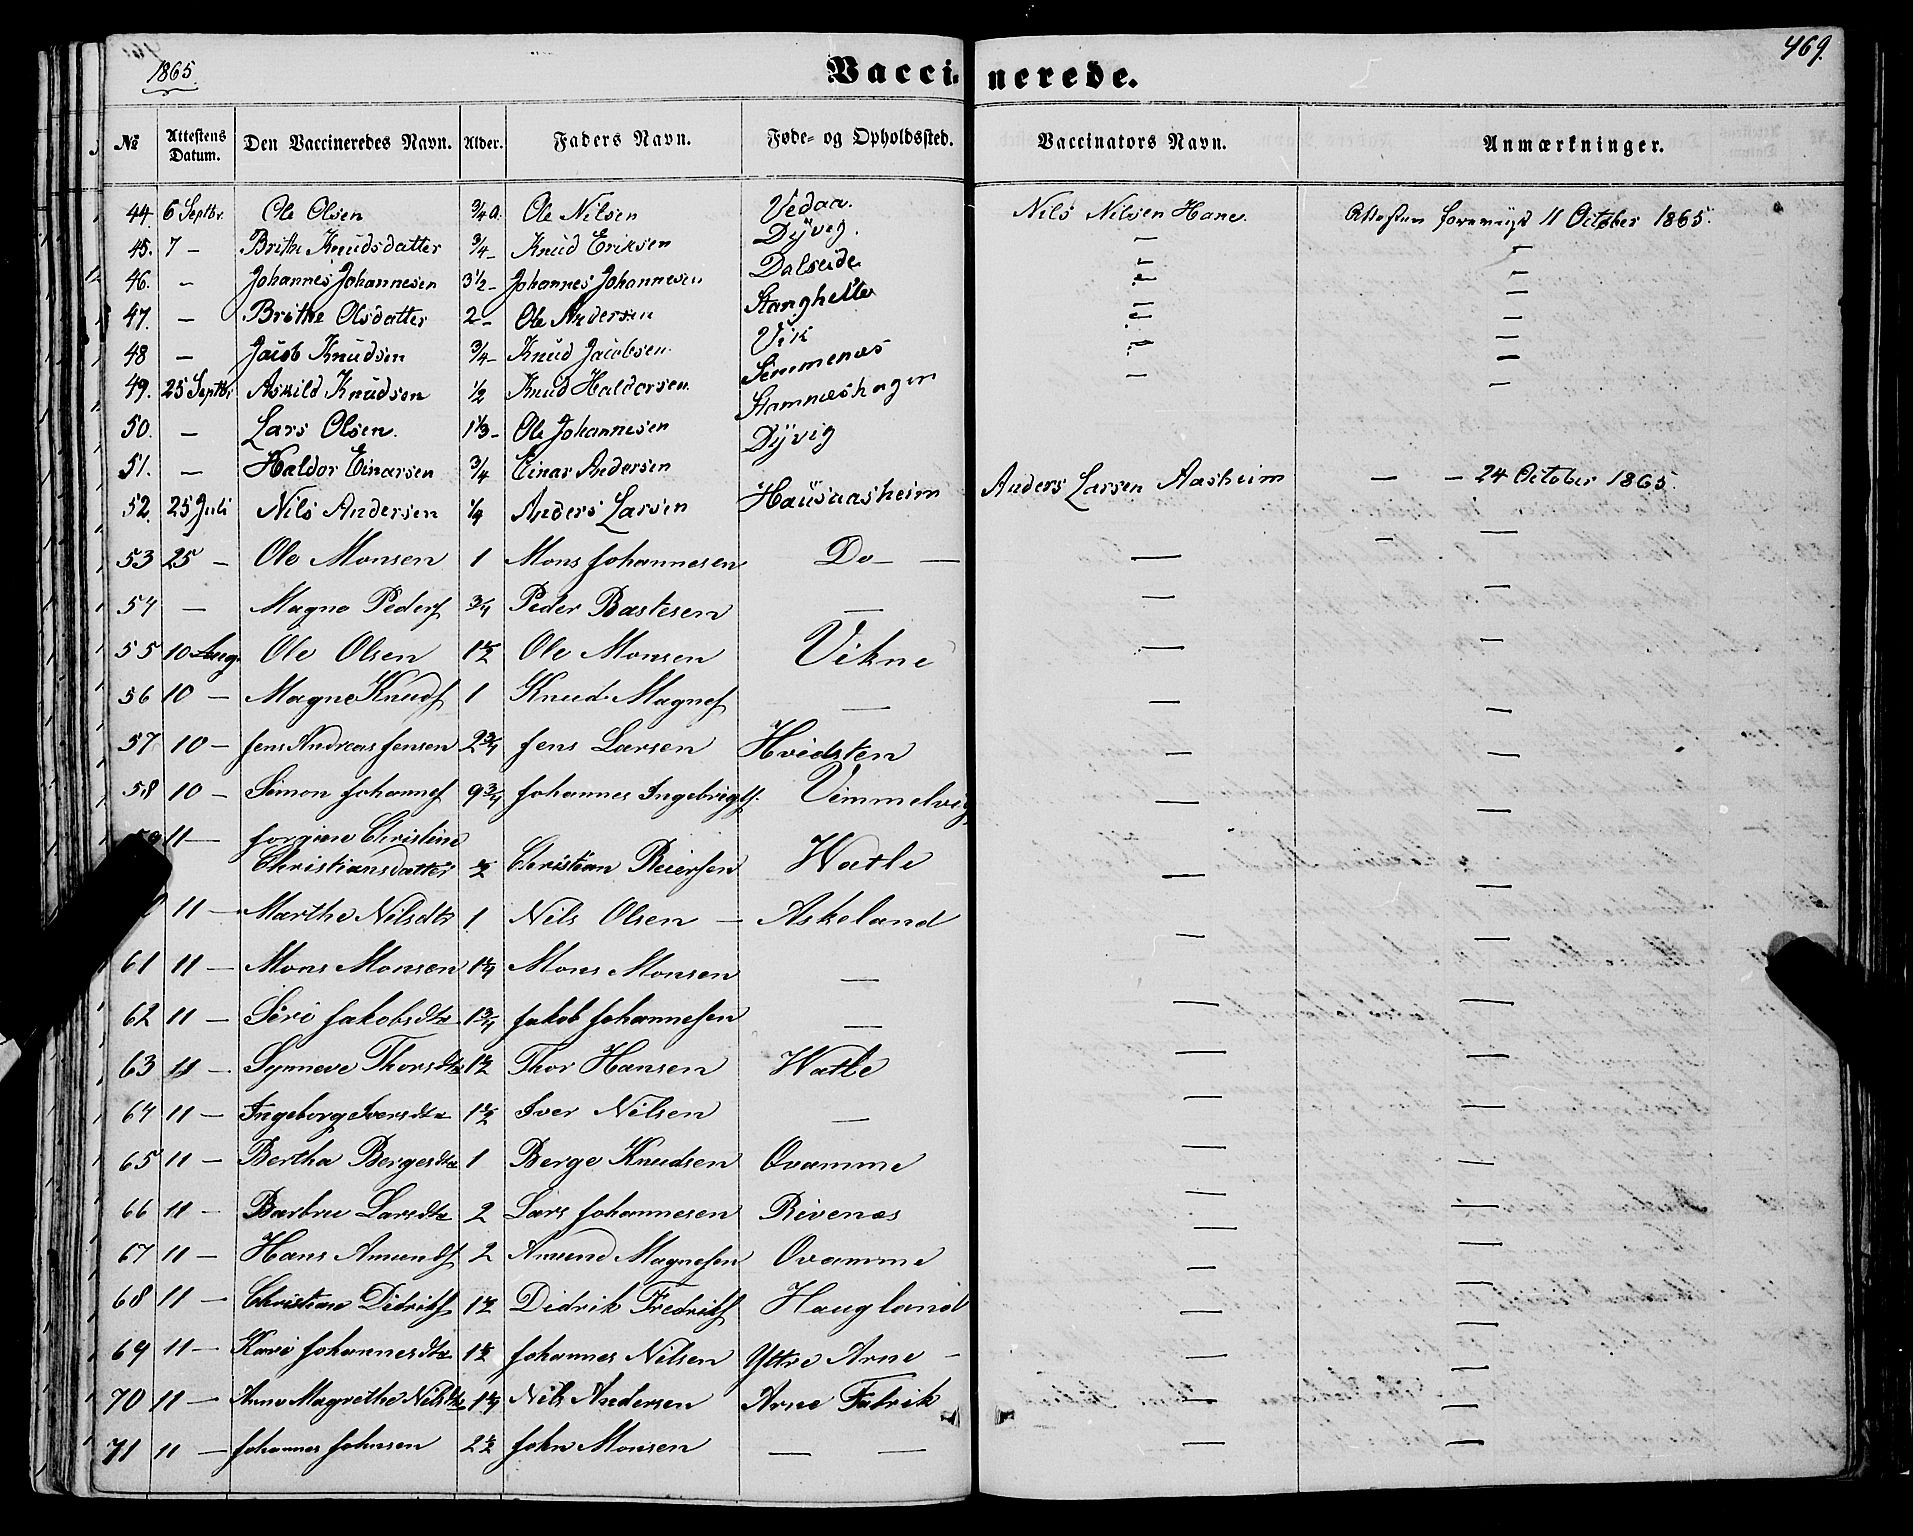 1865.
Vaccinerede.
469.
№ Attestens Datum. Den Vaccineredes Navn. Alder. Faders Navn. Føde- og Opholdssted. Vaccinators Navn. Anmærkninger.
44. 6 Septbr. Ole Olsen 3/4 a. Ole Nilsen Vedaa. Nils Nilsen Hane. Attesten forevist 11 October 1865.
45. 7 - Brithe Knudsdatter 3/4 - Knud Eriksen Dyvig. - -
46. - Johannes Johannesen 3 1/2 - Johannes Johannesen Dalseide - -
47. - Brithe Olsdatter 2 - Ole Andersen Stanghelle - -
48 - Jacob Knudsen 3/4 - Knud Jacobsen Vik - -
49. 25 Septbr Askild Knudsen 1/2 Knud Haldorsen Simmenæs - -
50. - Lars Olsen. 1 1/3 - Ole Johannesen Stamneshagen - -
51. - Haldor Einarsen 3/4 Einar Andersen Dyvig - -
52. 25 Juli Nils Andersen 1/4 Anders Larsen Hausaasheim Anders Larsen Aasheim - - 24 October 1865.
53 25 - Ole Monsen 1 Mons Johannesen Do - - - -
54 - Magne Peders 3/4 Peder Bastesen - - -
55 10 Aug. Ole Olsen 1 1/2 Ole Monsen Vikne - -
56 10 - Magne Knuds 1 Knud Magnes - - -
57 10 - Jens Andreas Jensen 2 3/4 Jens Larsen Hvidsten - -
58 10 - Simon Johannes 9 3/4 Johannes Ingebrigts. Vimmelvig - -
59 11 - Jorgine Christine
Christiansdatter 1/2 Christian Reiersen Watle - -
11 - Marthe Nilsdtr 1 Nils Olsen - Askeland - -
61 11 - Mons Monsen 1 1/4 Mons Monsen - - -
62 11 - Siri Jakobsdtr 1 3/4 Jakob Johannesen - - -
63 11 - Synneve Thorsdtr 1 1/2 Thor Hansen Watle - -
64 11 - Ingeborg Iversdtr 1 1/2 Iver Nilsen - - -
65 11 - Bertha Bergesdtr 1 Berge Knudsen Ovamme - -
66 11 - Barbru Larsdtr 2 Lars Johannesen Rivenæs - -
67 11 - Hans Amunds 2 Amund Magnesen Ovamme - -
68 11 - Christian Didriks 1 1/2 Didrik Fredriks Haugland - -
69 11 - Kari Johannesdtr 1 1/2 Johannes Nilsen Yttre Arne - - -
70 11 - Anne Magrethe Nilsdtr 1 1/4 Nils Andersen Arne Fabrik - -
71 11 - Johannes Johnsen 2 1/2 John Monsen - - - -